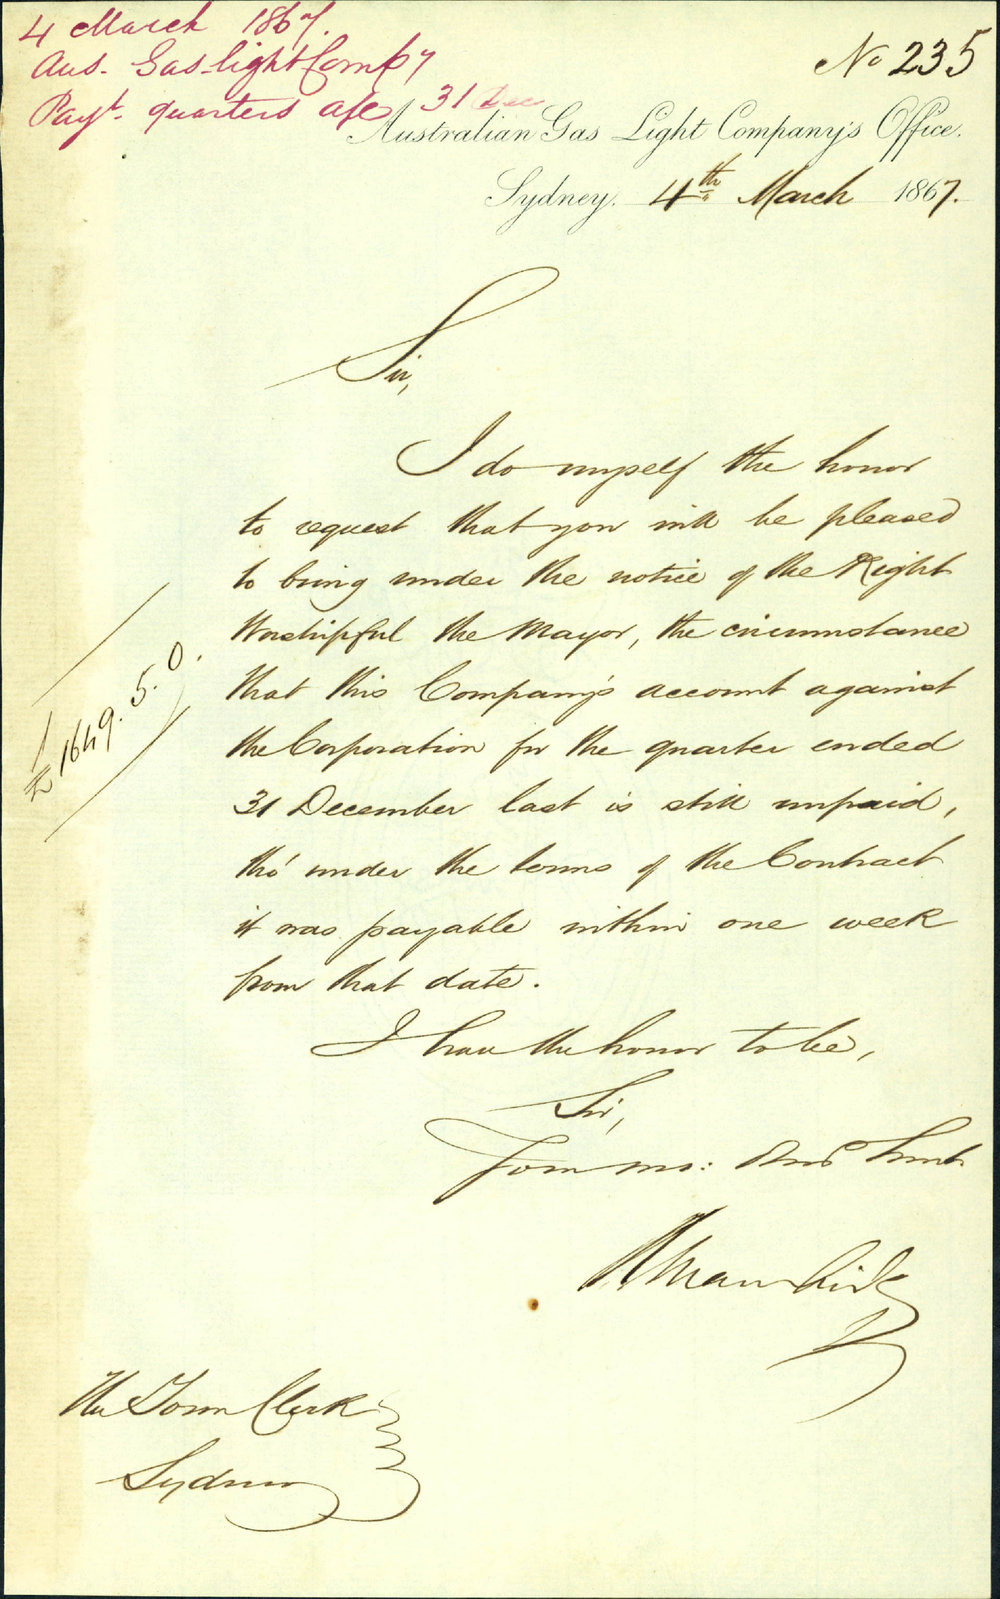 4 March 1867.
Aus. Gas-light Compy
Payt. quarters a/c 31 Dec
No 235
Australian Gas Light Company's Office.
Sydney. 4th March 1867.
Sir,
I do myself the honor
to request that you will be pleased
to bring under the notice of the Right
Worshipful the Mayor, the circumstance
that this Company's account against
the Corporation for the quarter ended
31 December last is still unpaid,
£1649.5.0.
tho' under the terms of the Contract
it was payable within one week
from that date.
I have the honor to be,
Sir,
Your mo: Obt Servt
The Town Clerk
Sydney